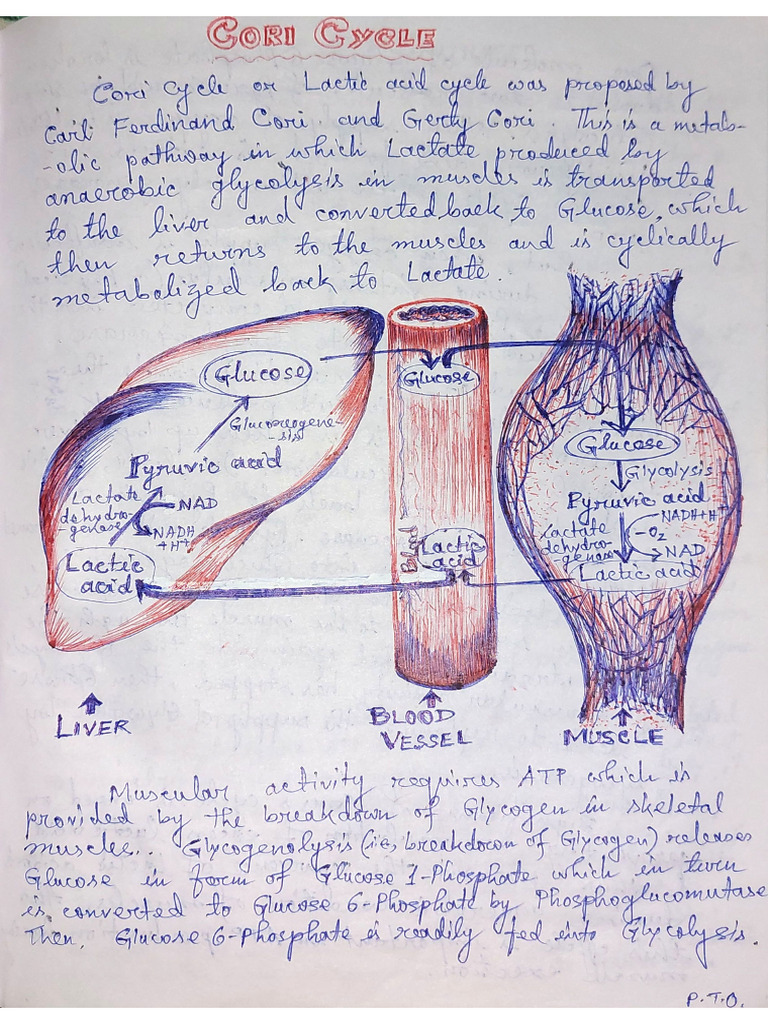 CORI CYCLE
Cori Cycle or Lactic acid cycle was proposed by
Carl Ferdinand Cori and Gerty Cori. This is a metab-
-olic pathway in which Lactate produced by
anaerobic glycolysis in muscles is transported
to the liver and converted back to Glucose, which
then returns to the muscles and is cyclically
metabolized back to Lactate.
Glucose
Gluconeogene-
-sis
Pyruvic acid
Lactate
dehydro-
genase
NAD
NADH
+H+
Lactic
acid
LIVER
Glucose
Blood
Lactic
acid
BLOOD
VESSEL
Glucose
Glycolysis
Pyruvic acid
Lactate
dehydro-
genase
NADH+H+
-O₂
NAD
Lactic acid
MUSCLE
Muscular activity requires ATP which is
provided by the breakdown of Glycogen in skeletal
muscles. Glycogenolysis (i.e, breakdown of Glycogen) releases
Glucose in form of Glucose 1-Phosphate which in turn
is converted to Glucose 6-Phosphate by Phosphoglucomutase
Then, Glucose 6-Phosphate is readily fed into Glycolysis.
P.T.O.